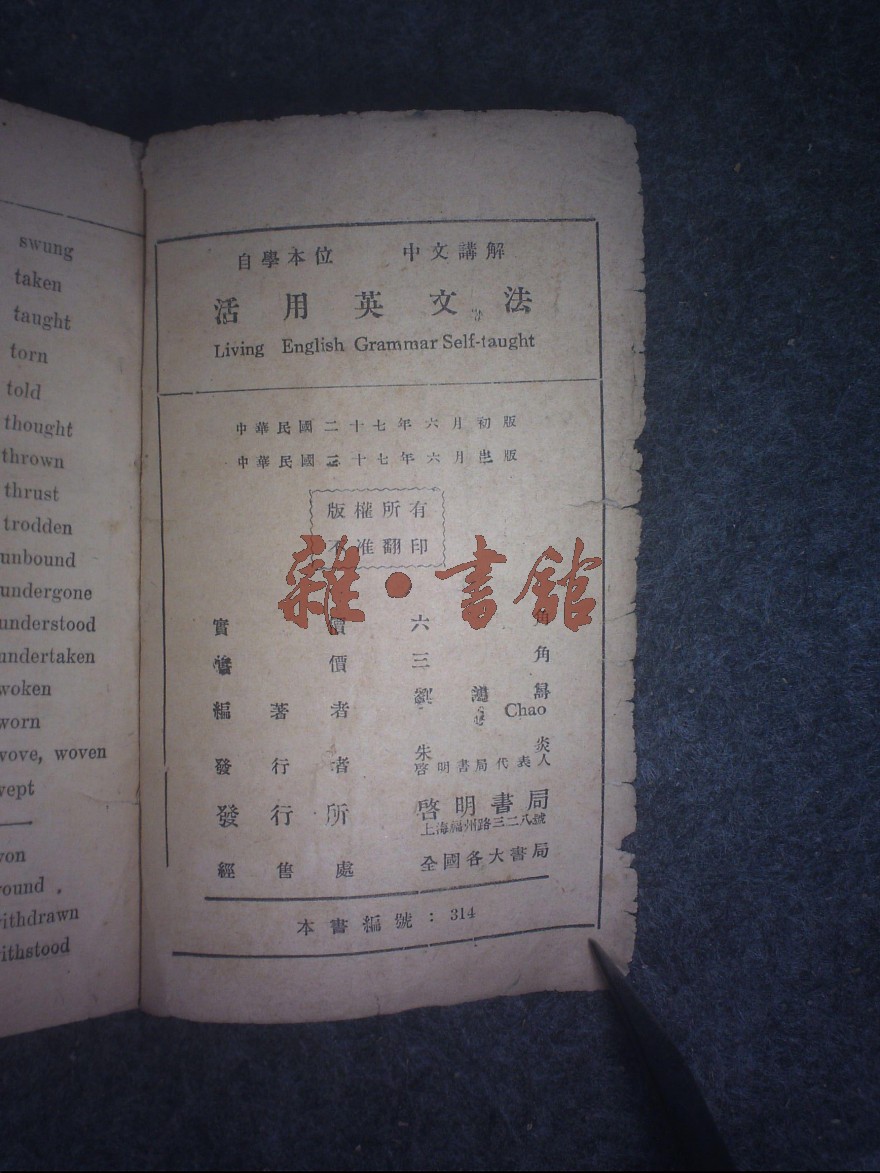 swung
taken
taught
torn
told
thought
thrown
thrust
trodden
unbound
undergone
understood
undertaken
woken
worn
wove, woven
wept
won
wound
withdrawn
withstood
自學本位 中文講解
活用英文法
Living English Grammar Self-taught
中華民國二十七年六月初版
中華民國三十七年六月出版
版權所有
不准翻印
雜·書館
實價六角
價三角
編著者 劉
Chao
發行者 朱炎
啓明書局代表人
發行所 啓明書局
上海福州路三二八號
經售處 全國各大書局
本書編號：314